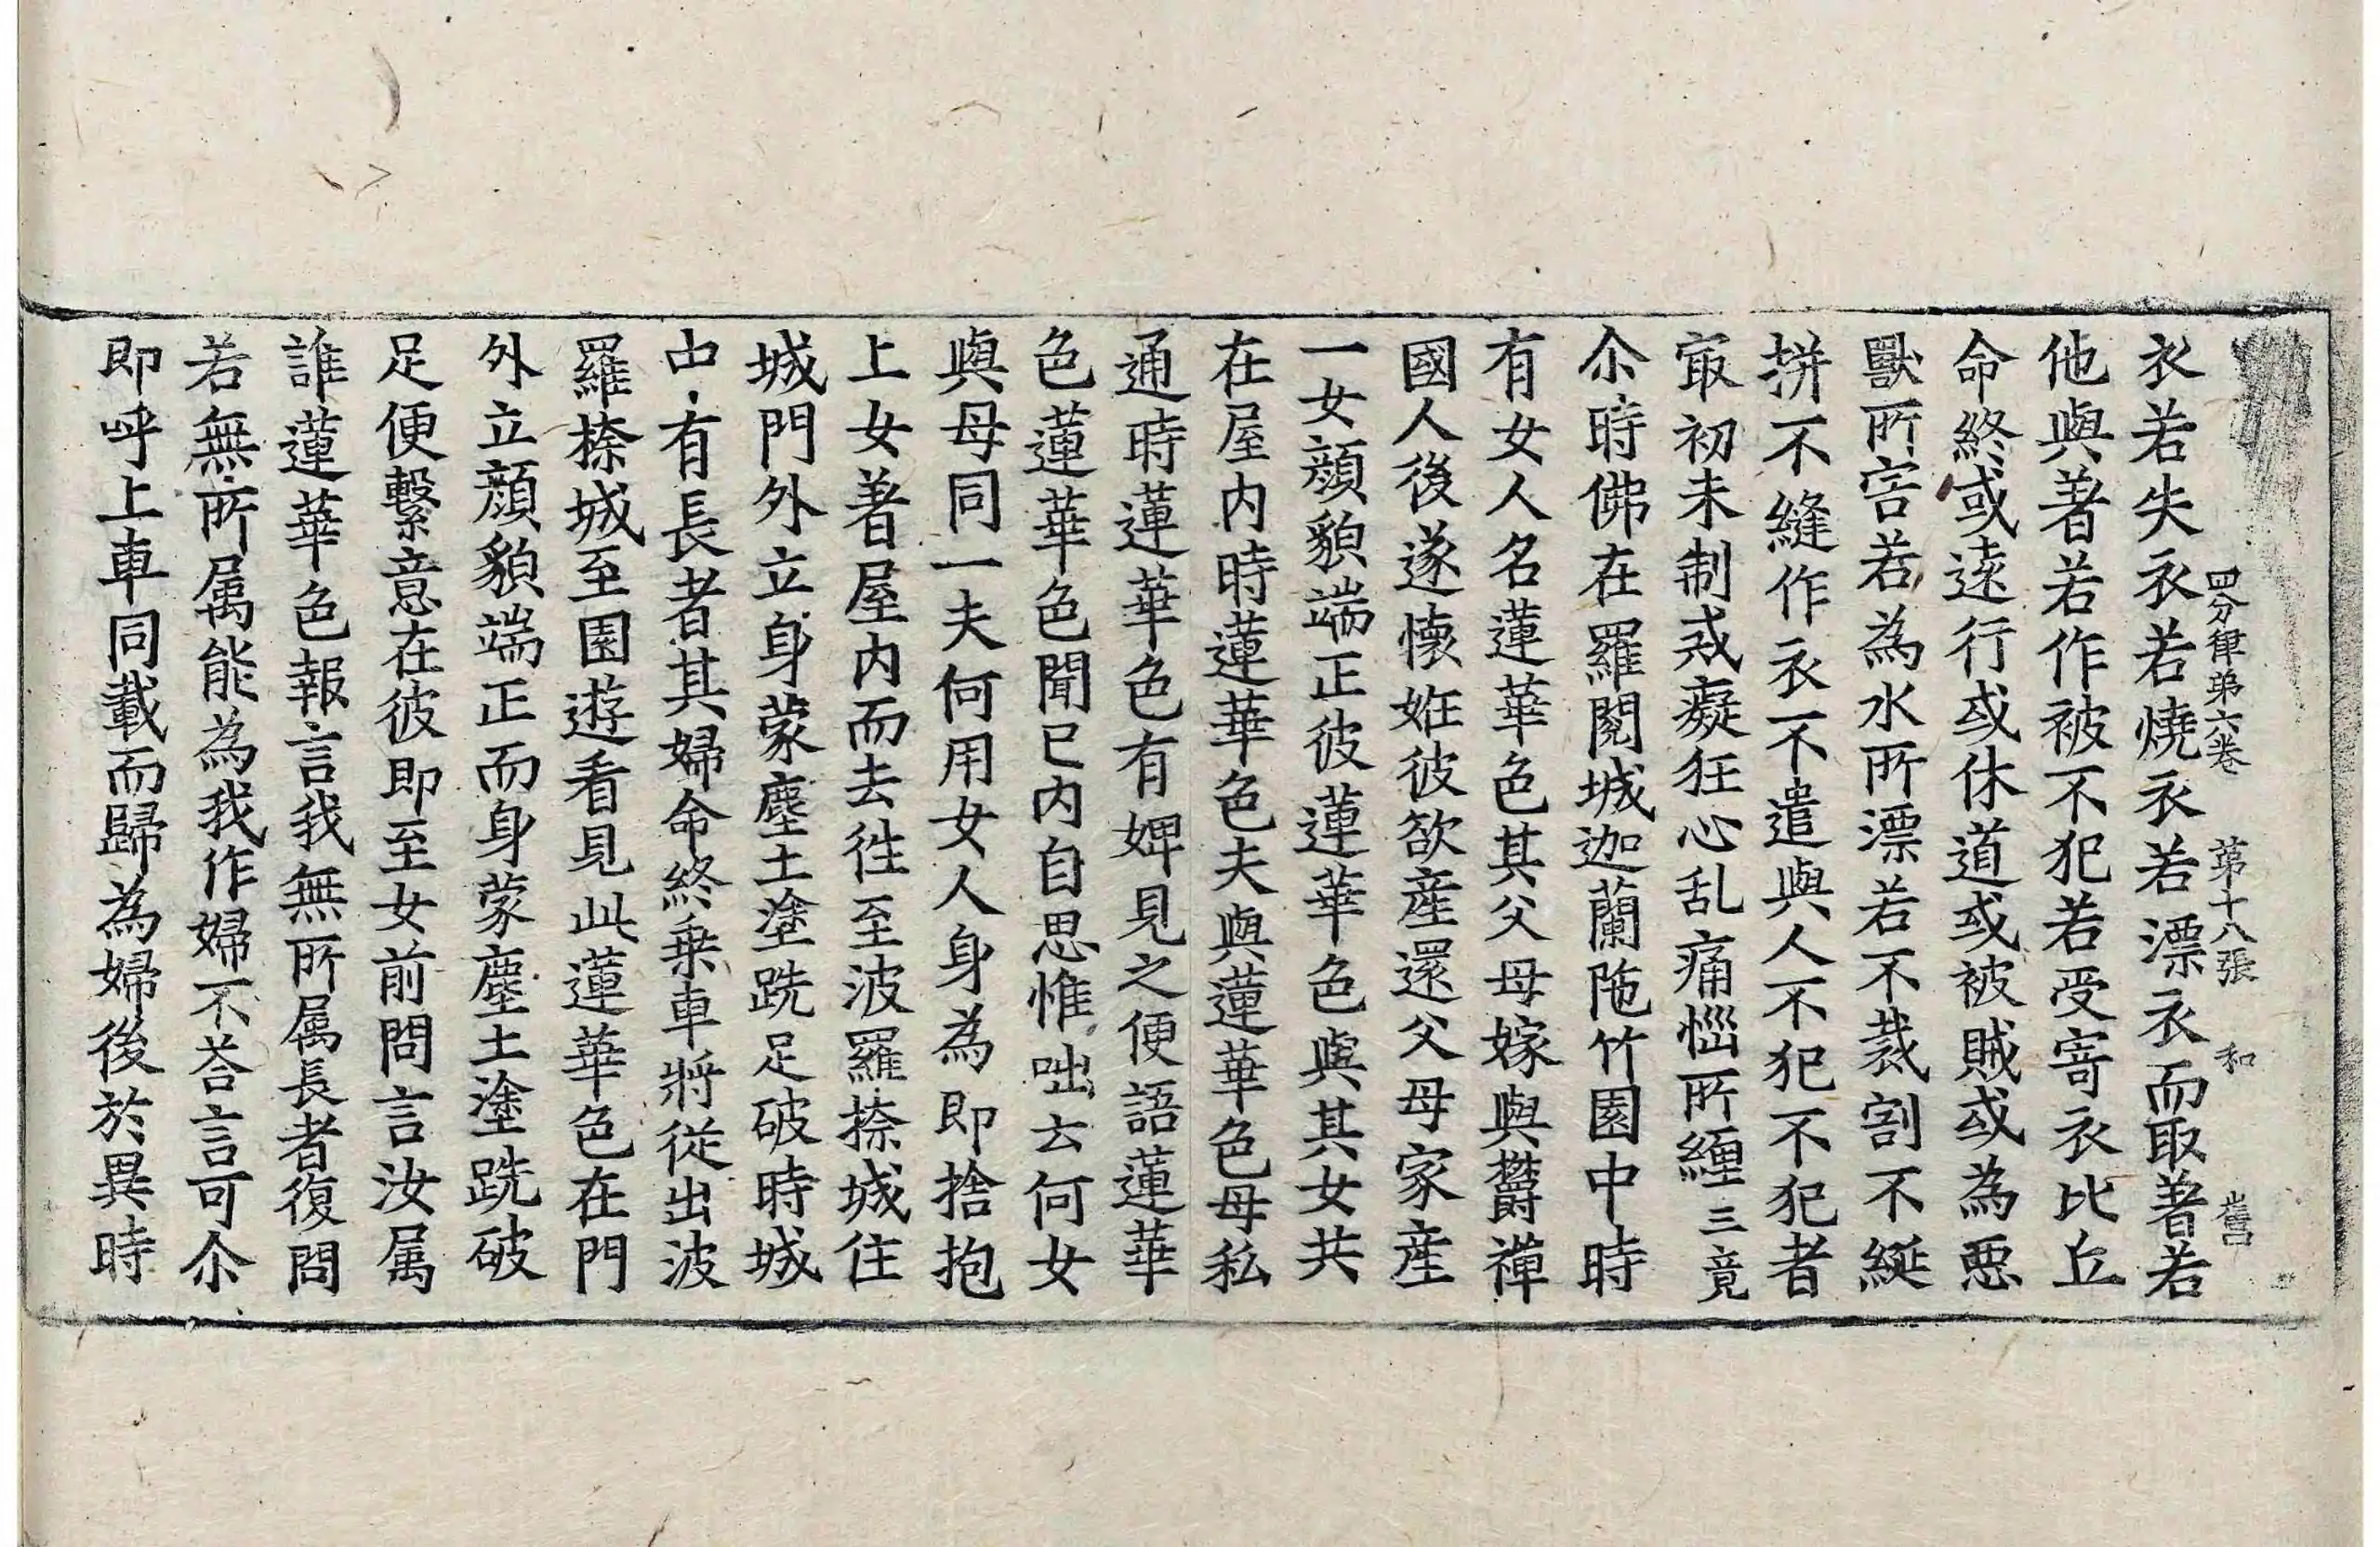 四分律弟六卷 第十八張 和
衣若失衣若燒衣若漂衣而取著若
他與著若作被不犯若受寄衣比丘
命終或遠行或休道或被賊或為惡
獸所害若為水所漂若不裁割不綖
拼不縫作衣不遣與人不犯不犯者
㝡初未制戒癡狂心乱痛惱所纏三竟
尒時佛在羅閱城迦蘭陁竹園中時
有女人名蓮華色其父母嫁與欝禪
國人後遂懷妊彼欲産還父母家産
一女顔貌端正彼蓮華色與其女共
在屋内時蓮華色夫與蓮華色母私
通時蓮華色有婢見之便語蓮華
色蓮華色聞已内自思惟咄云何女
與母同一夫何用女人身為即捨抱
上女著屋内而去往至波羅捺城住
城門外立身蒙塵土塗跣足破時城
中有長者其婦命終乗車將從出波
羅捺城至園遊看見此蓮華色在門
外立顔貌端正而身蒙塵土塗跣破
足便繫意在彼即至女前問言汝属
誰蓮華色報言我無所属長者復問
若無所属能為我作婦不荅言可尒
即呼上車同載而歸為婦後於異時